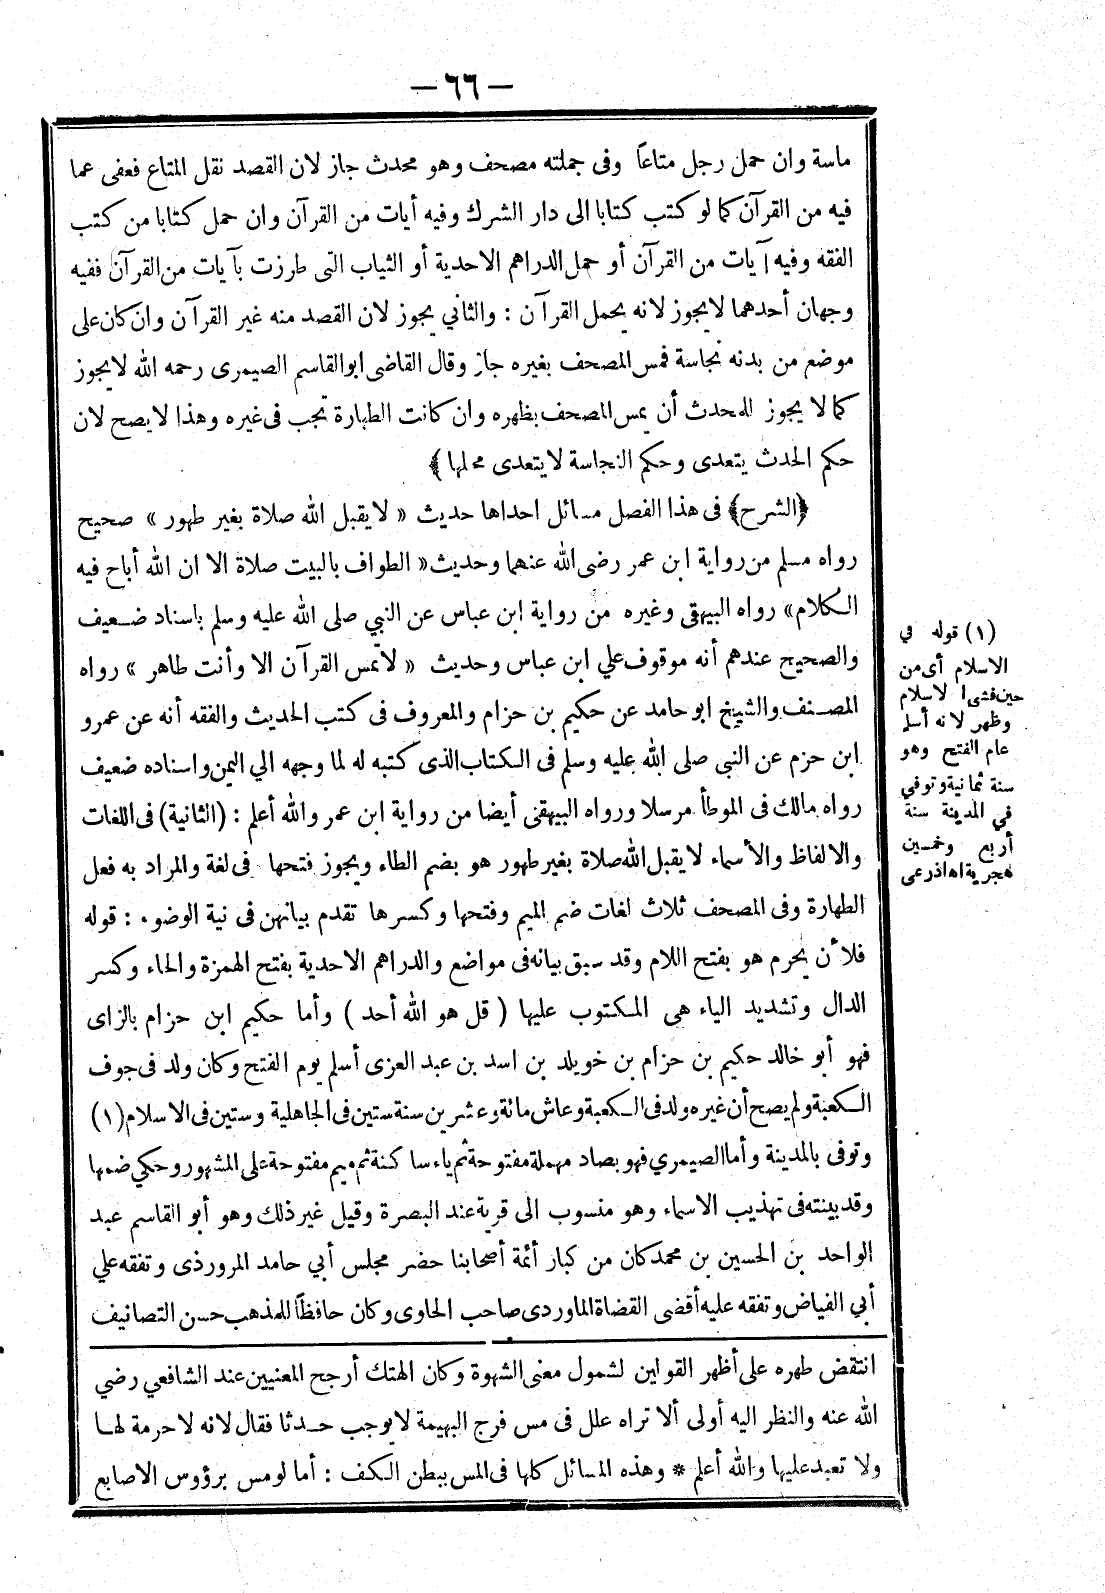 — ٦٦ —
ماسة وان حمل رجل متاعاً وفى جملته مصحف وهو محدث جاز لان القصد نقل المتاع فعفى عما
فيه من القرآن كما لو كتب كتابا الى دار الشرك وفيه أيات من القرآن وان حمل كتابا من كتب
الفقه وفيه آيات من القرآن أو حمل الدراهم الاحدية أو الثياب التى طرزت بآيات من القرآن ففيه
وجهان أحدهما لايجوز لانه يحمل القرآن : والثاني يجوز لان القصد منه غير القرآن وان كان على
موضع من بدنه نجاسة فمس المصحف بغيره جاز وقال القاضى ابوالقاسم الصيمرى رحمه الله لايجوز
كما لا يجوز للمحدث أن يمس المصحف بظهره وان كانت الطهارة تجب فى غيره وهذا لايصح لان
حكم الحدث يتعدى وحكم النجاسة لايتعدى محلها ﴾
﴿الشرح﴾ فى هذا الفصل مسائل احداها حديث « لايقبل الله صلاة بغير طهور » صحيح
رواه مسلم من رواية ابن عمر رضى الله عنهما وحديث « الطواف بالبيت صلاة الا ان الله أباح فيه
الكلام» رواه البيهقى وغيره من رواية ابن عباس عن النبي صلى الله عليه وسلم باسناد ضعيف
والصحيح عندهم أنه موقوف علي ابن عباس وحديث « لاتمس القرآن الا وأنت طاهر » رواه
المصنف والشيخ ابو حامد عن حكيم بن حزام والمعروف فى كتب الحديث والفقه أنه عن عمرو
ابن حزم عن النبى صلى الله عليه وسلم فى الكتاب الذى كتبه له لما وجهه الي اليمن واسناده ضعيف
رواه مالك فى الموطأ مرسلا ورواه البيهقى أيضا من رواية ابن عمر والله أعلم : (الثانية) فى اللغات
والالفاظ والأسماء لايقبل الله صلاة بغير طهور هو بضم الطاء ويجوز فتحها فى لغة والمراد به فعل
الطهارة وفى المصحف ثلاث لغات ضم الميم وفتحها وكسرها تقدم بيانهن فى نية الوضوء : قوله
فلأن يحرم هو بفتح اللام وقد سبق بيانه فى مواضع والدراهم الاحدية بفتح الهمزة والحاء وكسر
الدال وتشديد الياء هى المكتوب عليها ( قل هو الله أحد ) وأما حكيم ابن حزام بالزاى
فهو أبو خالد حكيم بن حزام بن خويلد بن اسد بن عبد العزى أسلم يوم الفتح وكان ولد فى جوف
الكعبة ولم يصح أن غيره ولد فى الكعبة وعاش مائة وعشرين سنة ستين فى الجاهلية وستين فى الاسلام (١)
وتوفى بالمدينة وأما الصيمري فهو بصاد مهملة مفتوحة ثم ياء ساكنة ثم ميم مفتوحة على المشهور وحكي ضمها
وقد بينته فى تهذيب الاسماء وهو منسوب الى قرية عند البصرة وقيل غير ذلك وهو أبو القاسم عبد
الواحد بن الحسين بن محمد كان من كبار أئمة أصحابنا حضر مجلس أبي حامد المروروذى وتفقه علي
أبي الفياض وتفقه عليه أقضى القضاة الماوردى صاحب الحاوى وكان حافظاً للمذهب حسن التصانيف
(١) قوله في
الاسلام أى من
حين فشى الاسلام
وظهر لانه أسلم
عام الفتح وهو
سنة ثمانية وتوفي
في المدينة سنة
أربع وخمسين
هجرية اه اذرعى
انتقض طهره على أظهر القولين لشمول معنى الشهوة وكان الهتك أرجح المعنيين عند الشافعي رضي
الله عنه والنظر اليه أولى ألا تراه علل فى مس فرج البهيمة لايوجب حدثا فقال لانه لا حرمة لها
ولا تعبد عليها والله أعلم * وهذه المسائل كلها فى المس ببطن الكف : أما لو مس برؤوس الاصابع